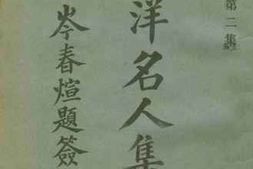 第二集
洋名人集
岑春煊題簽